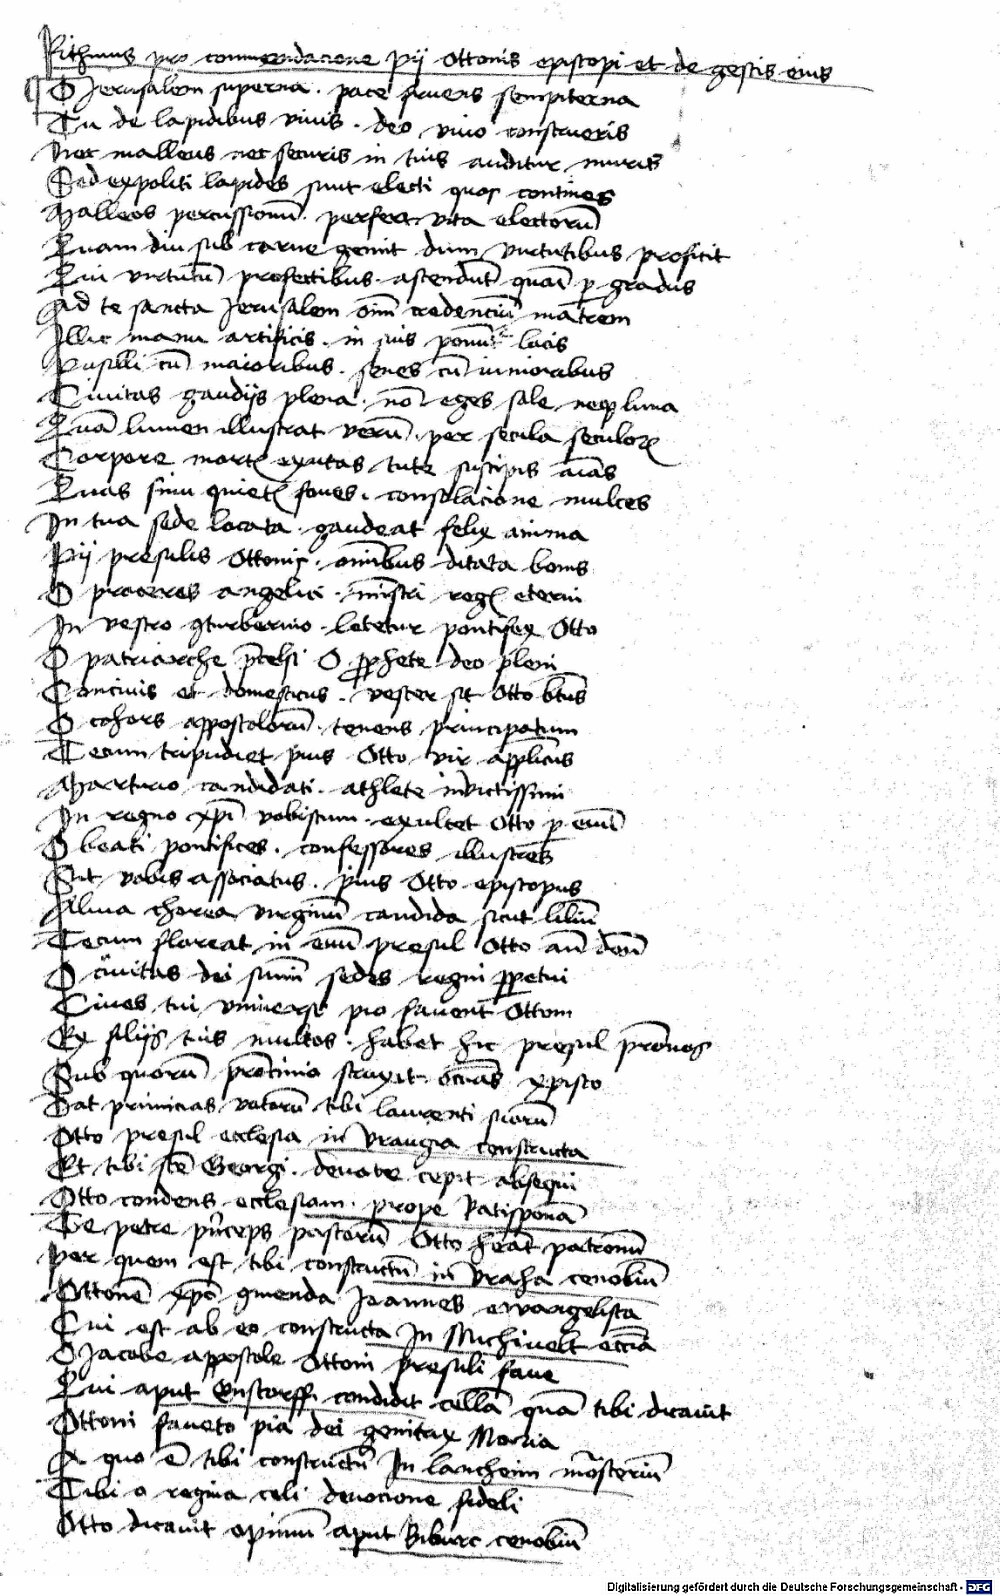 Rithmus pro commendacione pij Ottonis episcopi et de gestis eius
O Jerusalem superna . pace fruens sempiterna
Tu de lapidibus vivis . deo vivo construeris
Nec malleus nec securis in tuis auditur muris
Sed expoliti lapides sunt electi quos contines
Malleos percussionū . perfert vita electorū
Quam diu sub carne gemit dum virtutibus proficit
Qui virtutū profectibus . ascendūt quasi p gradus
Ad te sancta Jerusalem oīm credenciū matrem
Illic manu artificis . in suis ponunt locis
Pusilli cū maioribus . senes cū iunioribus
Civitas gaudijs plena . nō eges sole neqꝫ luna
Quā lumen illustrat verū . per secula seculoꝝ
Corpore mortis exutas tute suscipis aīas
Quas sinu quietis foves . consolacione mulces
In tua sede locata . gaudeat felix anima
Pij presulis Ottonis . omībus ditata bonis
O proceres angelici . mīstri regis eterni
In vestro ꝯturbernio . letetur pontifex Otto
O patriarche p̄celsi O ꝓphete deo pleni
Concivis et domesticus . vester sit Otto btūs
O cohors appostolorū . tenens principatum
Tecum tripudiet pius Otto vir applicus
Marturio candidati . athlete invictissimi
In regno xp̄i vobiscum . exultet Otto p evū
O beati pontifices . confessores illustres
Sit vobis associatus . pius Otto episcopus
Alma chorea virginū candida sicut liliū
Tecum floreat in evū presul Otto añ deū
O civitas dei summi sedes regni ꝑpetui
Cives tui universi pio favent Ottoni
Ex filijs tuis multos . habet hic presul pr̄onos
Sub quorū pr̄ocinio struxit occīas xpisto
Dat primicias votorū tibi laurenti suorū
Otto presul ecclesia in Vraugia constructa
Et tibi scē Georgi . devote cepit obsequi
Otto condens ecclesiam . prope Ratisponā
Te petre pn̄ceps pastorū Otto hēat patronū
Per quem est tibi constructū in Vraha cenobiū
Ottonē xpō ꝯmenda Joannes ewangelista
Cui est ab eo constructa In Michivelt eccīa
O Jacobe appostole Ottoni presuli fave
Qui aput Enstorff . condidit cellā quā tibi dicavit
Ottoni faveto pia dei genitrix Maria
A quo ē tibi constructū In lancheim mōsteriū
Tibi o regina celi devocione fideli
Otto dicavit opimū aput Biburc cenobiū
Digitalisierung gefördert durch die Deutsche Forschungsgemeinschaft - DFG